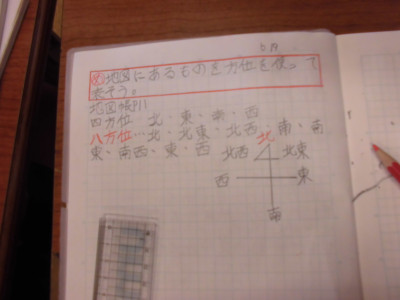 6/19
地図にあるものを方位を使って
表そう。
地図帳P11
四方位…北、東、南、西
八方位…北、北東、北西、南、南
東、南西、東、西
北
北西 北東
西 東
南